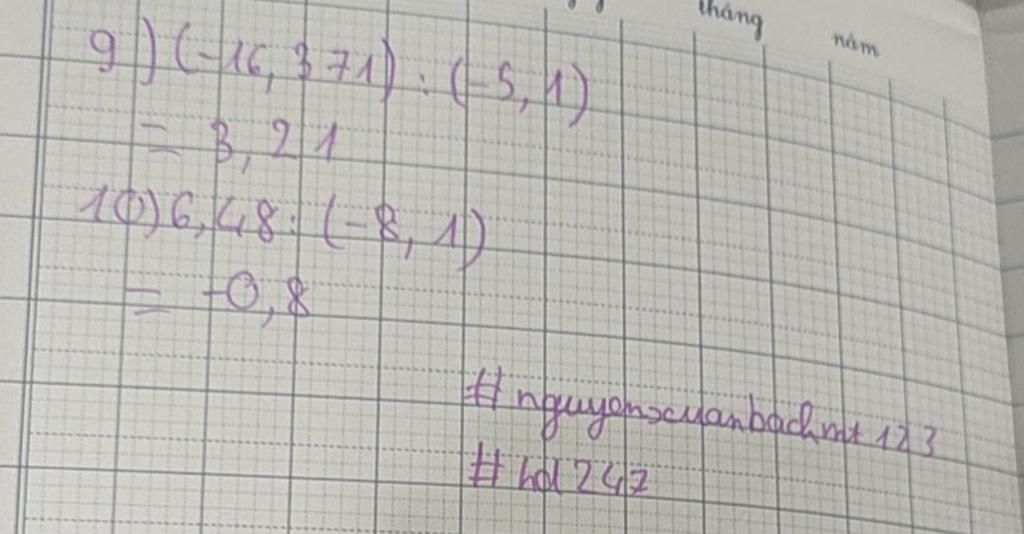 tháng năm
9) (-16,371) : (-5,1)
= 3,21
10) 6,48 : (-8,1)
= -0,8
#nguyenxuanbachmt123
#hd247